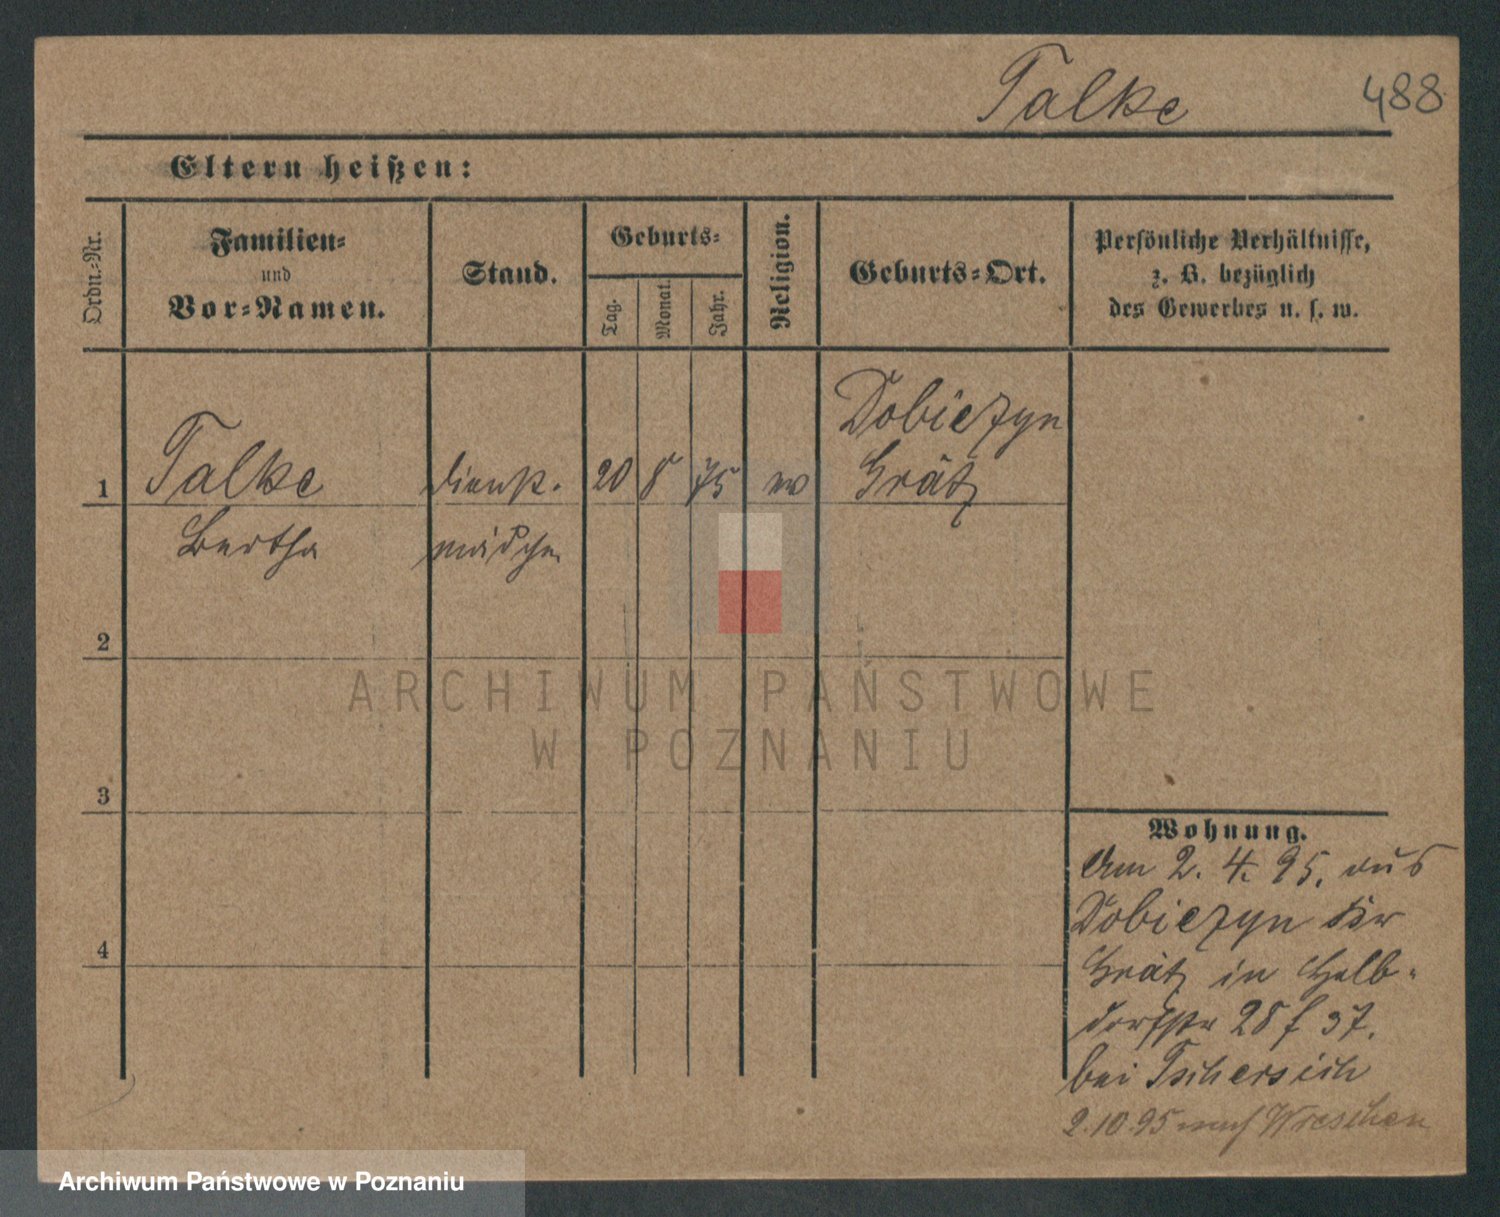 Talke
488
Eltern heißen:
Ordn.-Nr.
Familien-
und
Vor-Namen.
Stand.
Geburts-
Tag.
Monat.
Jahr.
Religion.
Geburts-Ort.
Persönliche Verhältnisse,
z. B. bezüglich
des Gewerbes u. s. w.
1
Talke
Bertha
Dienst-
mädchen
20 8 75
Dobiezyn
Grätz
2
3
4
Wohnung.
Am 2. 4. 95. aus
Dobiezyn Kr
Grätz in Halb-
dorfstr 28 f 37.
bei Tschersich
2.10.95 nach Wreschen
ARCHIWUM PAŃSTWOWE
W POZNANIU
Archiwum Państwowe w Poznaniu